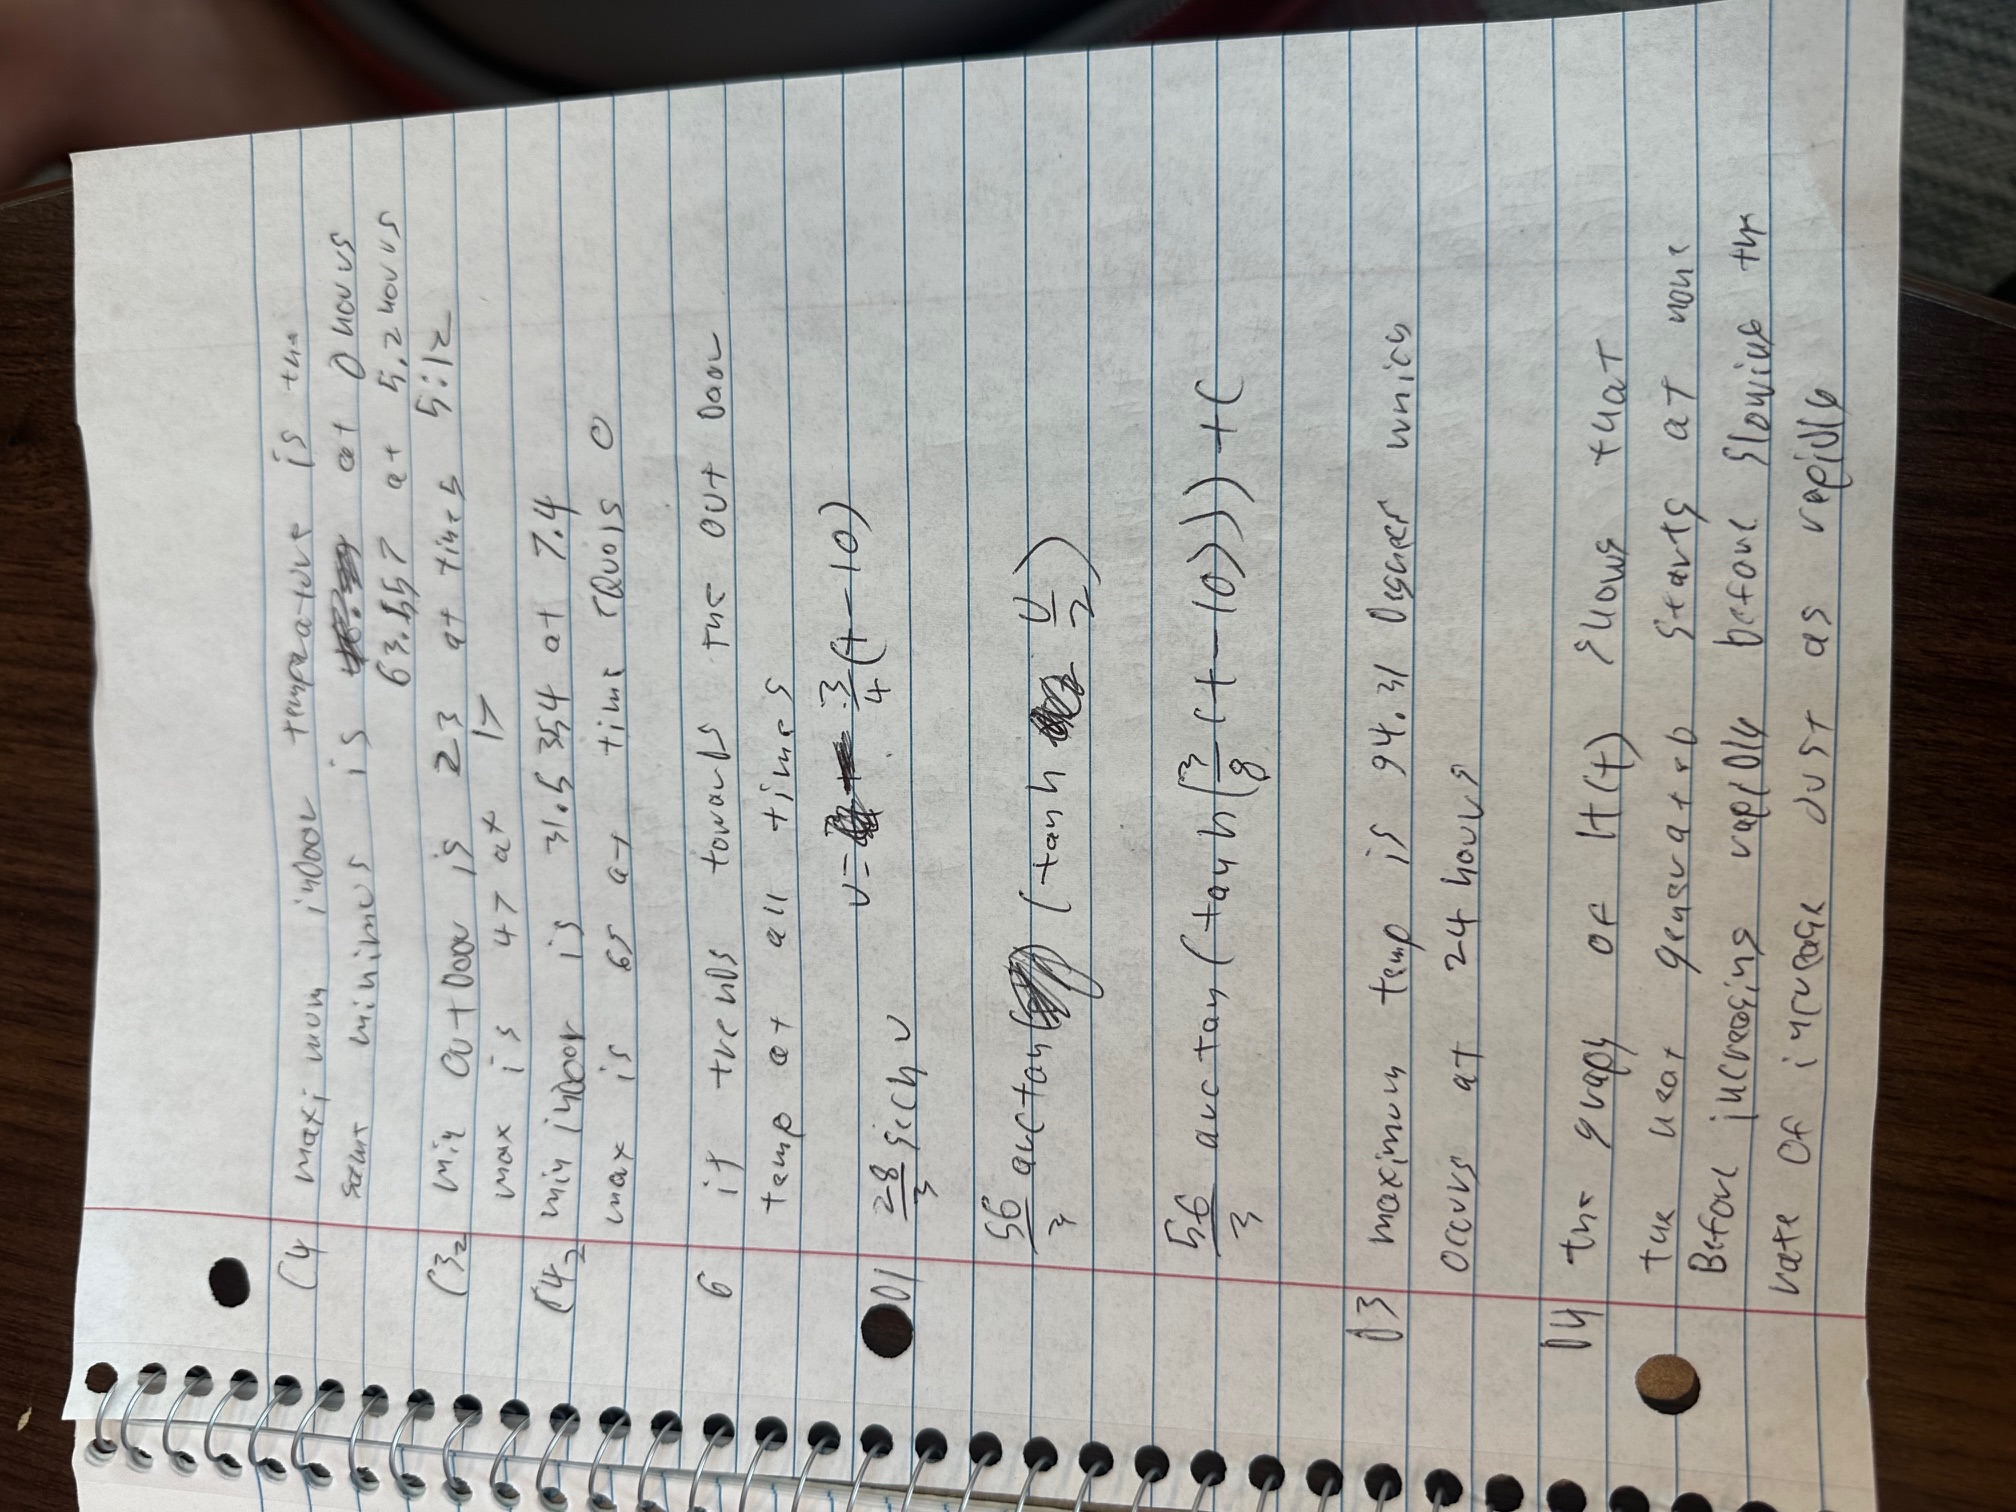 C4 maximum indoor temperature is the
same minimus is at 0 hours
63.557 at 5.2 hours
C3₂ min outDoor is 23 at times 5:12
max is 47 at 17
C4₂ min inDoor is 31.5354 at 7.4
max is 65 at time equals 0
6 it trends towards the out Door
temp at all times
u = 3/4 (t-10)
D1 28/3 sech u
56/3 arctan (tanh u/2)
56/3 arctan (tanh(3/8 (t-10))) + C
D3 maximum temp is 94.31 Degrees which
occurs at 24 hours
D4 the graph of H(t) shows that
the heat generated starts at none
Before increasing rapidly before slowing the
rate of increase Just as rapidly